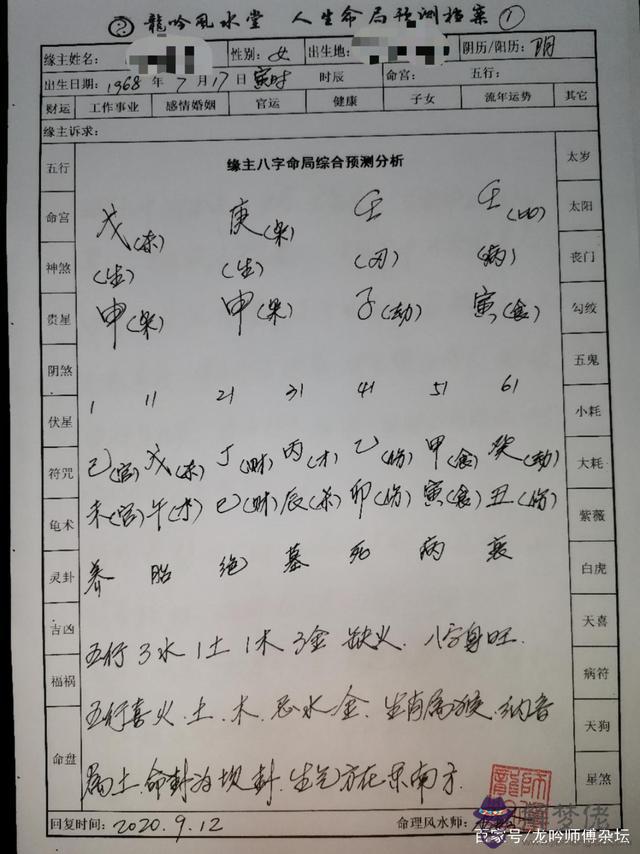 ② 龍吟風水堂 人生命局预测档案 ①
缘主姓名: 性别: 女 出生地: 阴历/阳历: 阴
出生日期: 1968 年 7 月 17 日 寅时 时辰 命宫: 五行:
财运 工作事业 感情婚姻 官运 健康 子女 流年运势 其它
缘主诉求:
缘主八字命局综合预测分析
五行
命宫
神煞
贵星
阴煞
伏星
符咒
龟术
灵卦
吉凶
福祸
命盘
戊(杀) 庚(枭) 壬 壬(比)
(生) (生) (刃) (病)
申(枭) 申(枭) 子(劫) 寅(食)
1 11 21 31 41 51 61
己(官) 戊(杀) 丁(财) 丙(才) 乙(伤) 甲(食) 癸(劫)
未(官) 午(才) 巳(财) 辰(杀) 卯(伤) 寅(食) 丑(伤)
养 胎 绝 墓 死 病 衰
五行 3水 1土 1木 3金 缺火. 八字身旺.
五行喜火.土.木.忌水金.生肖属猴.纳音
属土.命卦为坎卦.生气方在东南方.
太岁
太阳
丧门
勾绞
五鬼
小耗
大耗
紫薇
白虎
天喜
病符
天狗
星煞
回复时间: 2020.9.12 命理风水师:
解梦佬
百家号/龙吟师傅杂坛